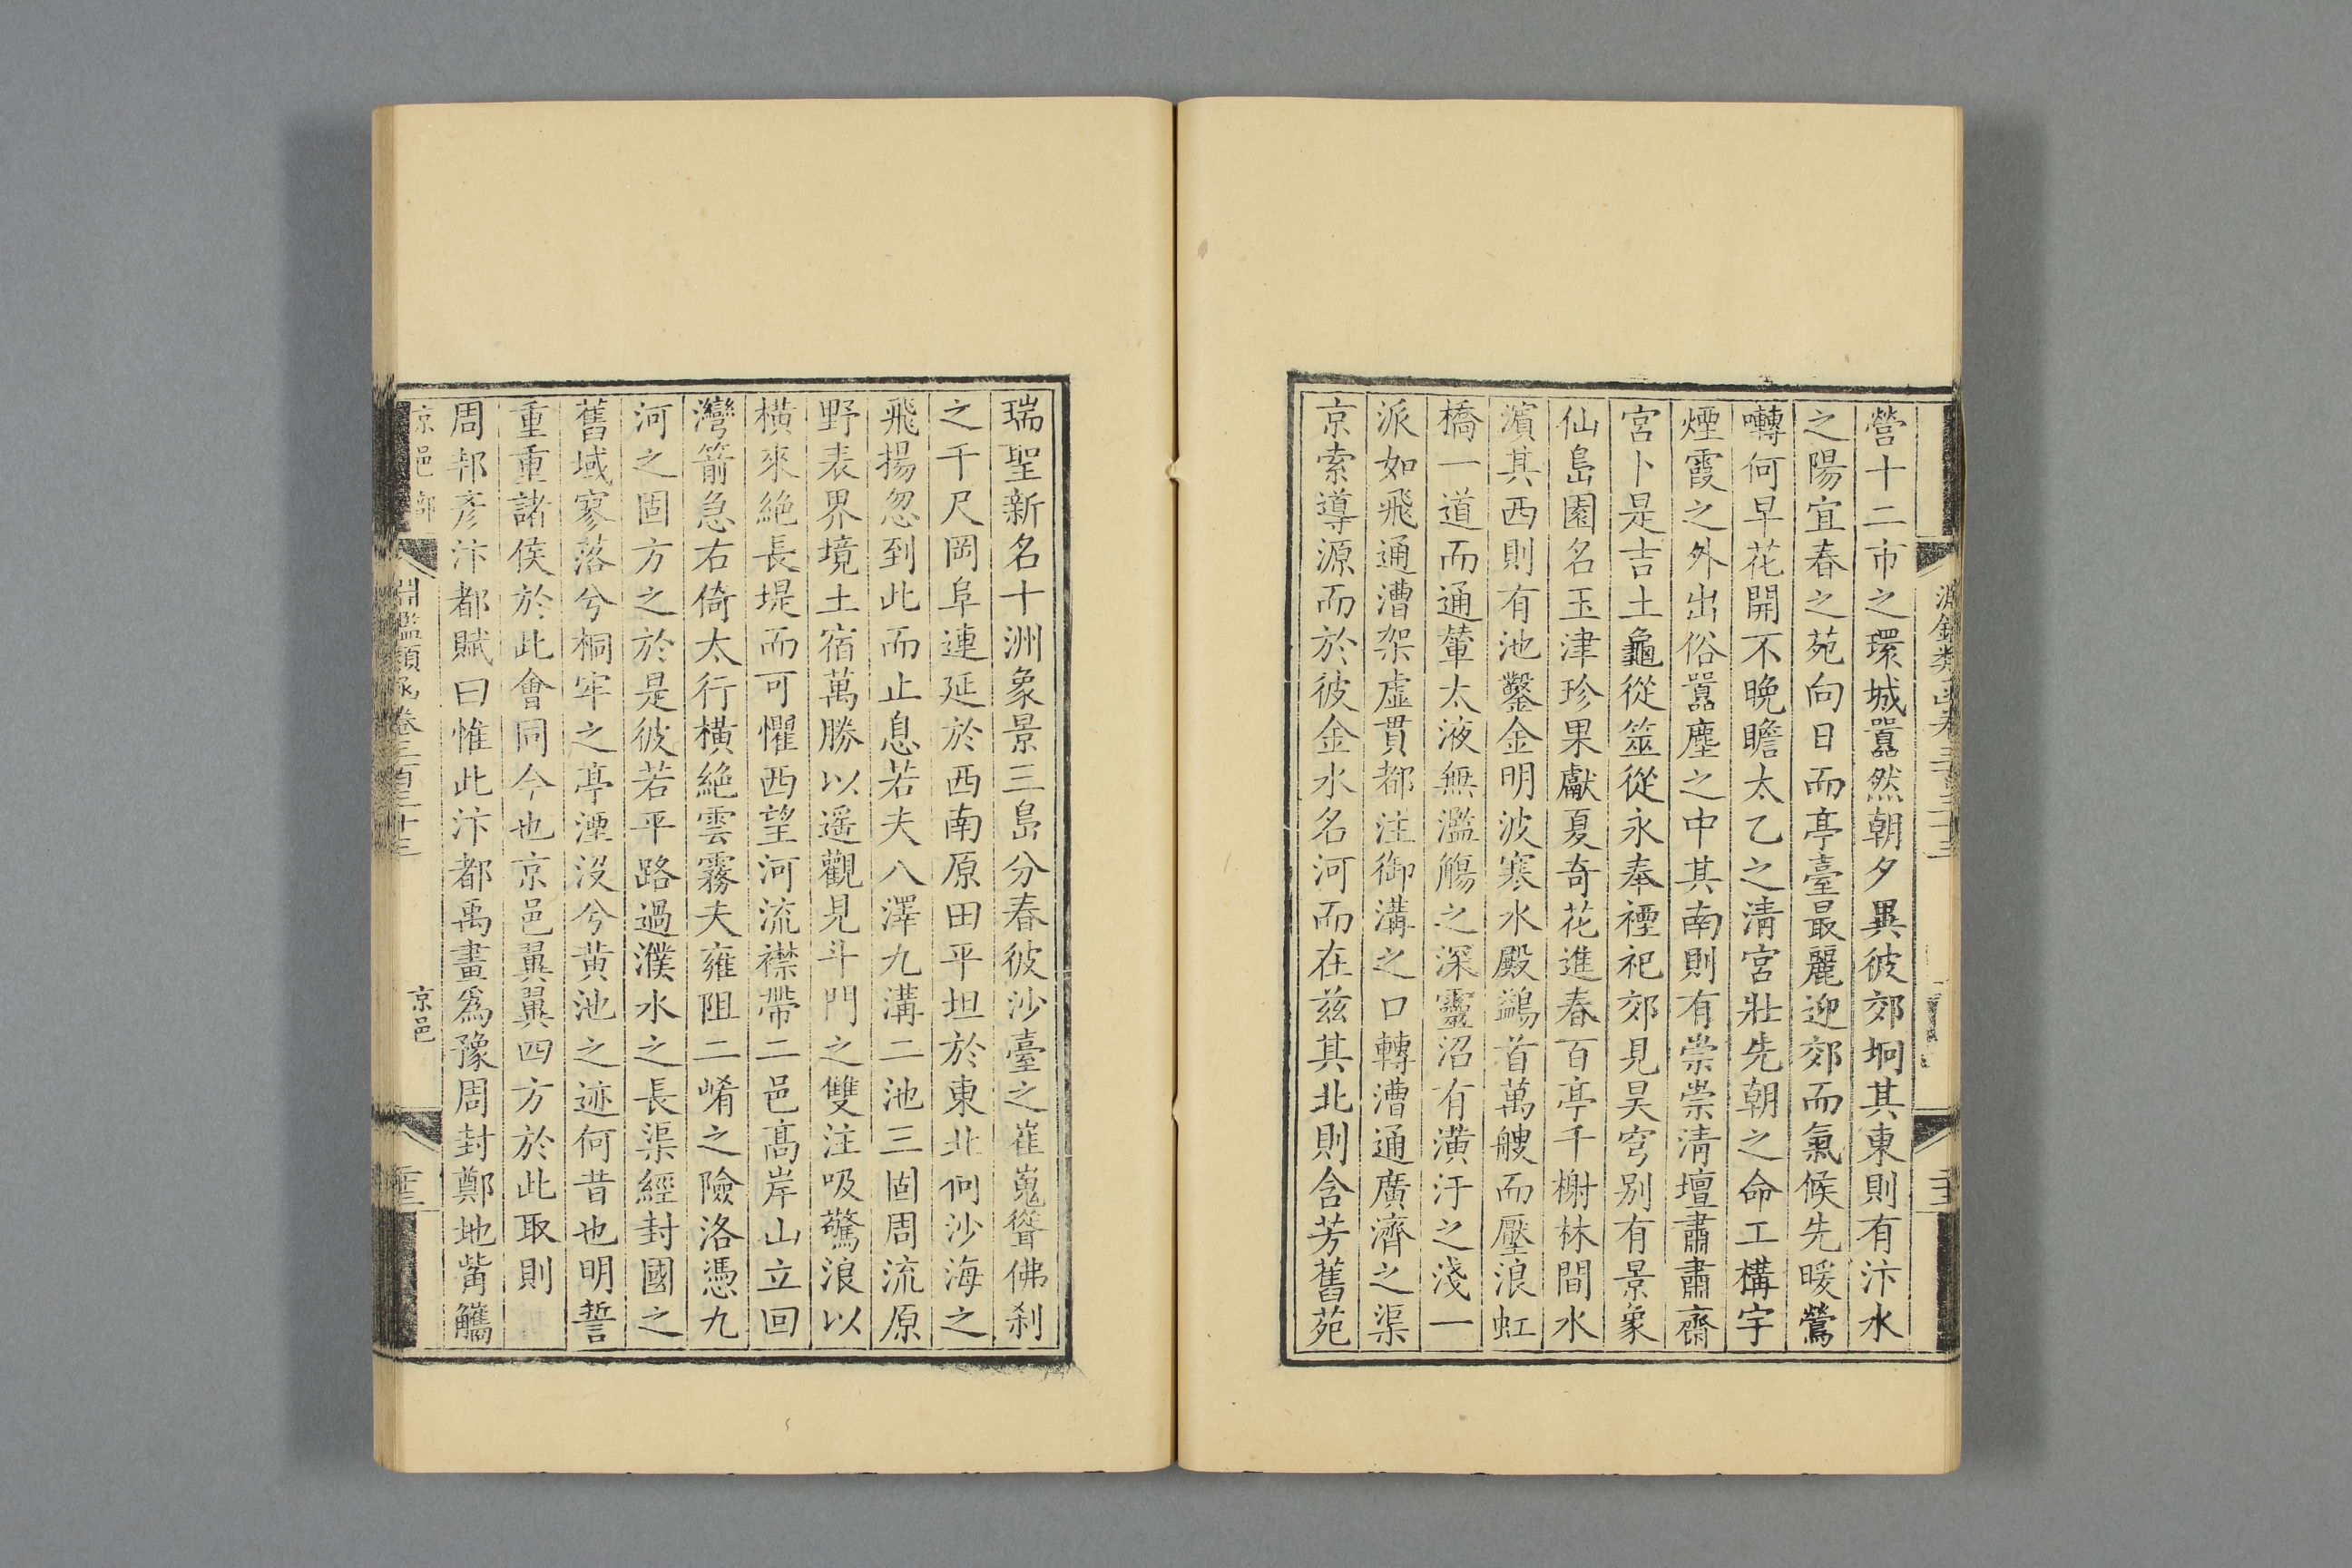 營十二市之環城囂然朝夕異彼郊坰其東則有汴水
之陽宜春之苑向日而亭臺最麗迎郊而氣候先暖鶯
囀何早花開不晚瞻太乙之清宮壯先朝之命工構宇
煙霞之外出俗囂塵之中其南則有崇崇清壇肅肅齋
宮卜是吉土龜從筮從永奉禋祀郊見昊穹別有景象
仙島園名玉津珍果獻夏奇花進春百亭千榭林間水
濱其西則有池鑿金明波寒水殿鷁首萬艘而壓浪虹
橋一道而通輦太液無濫觴之深靈沼有潢汙之淺一
派如飛通漕架虛貫都注御溝之口轉漕通廣濟之渠
京索導源而於彼金水名河而在茲其北則含芳舊苑
瑞聖新名十洲象景三島分春彼沙臺之崔嵬聳佛刹
之千尺岡阜連延於西南原田平坦於東北何沙海之
飛揚忽到此而止息若夫八澤九溝二池三固周流原
野表界境土宿萬勝以遥觀見斗門之雙注吸驚浪以
橫來絶長堤而可懼西望河流襟帶二邑高岸山立回
灣箭急右倚太行橫絶雲霧夫雍阻二崤之險洛憑九
河之固方之於是彼若平路過濮水之長渠經封國之
舊域寥落兮桐牢之亭湮没兮黄池之迹何昔也明誓
重重諸侯於此會同今也京邑翼翼四方於此取則
周邦彥汴都賦曰惟此汴都禹畫爲豫周封鄭地觜觿
京邑部
淵鑑類函卷三百三十三
京邑